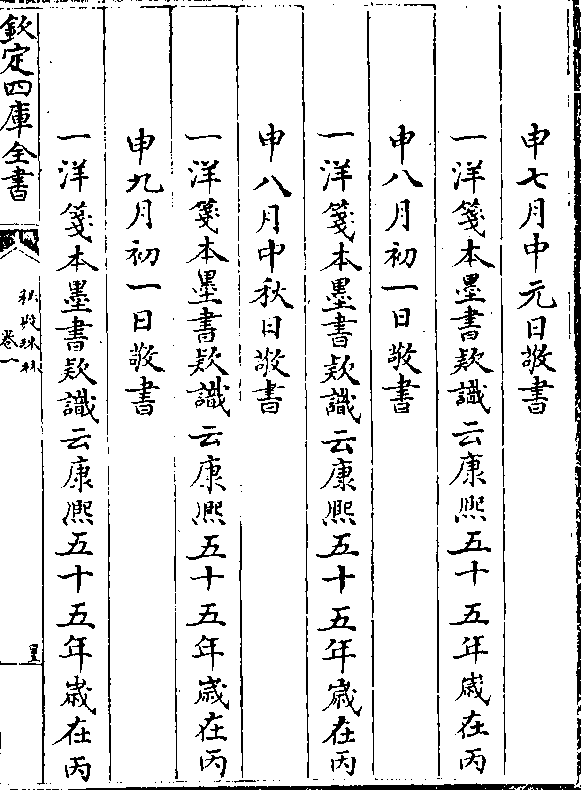 申七月中元日敬書
一洋箋本墨書欵識云康熙五十五年歲在丙
申八月初一日敬書
一洋箋本墨書欵識云康熙五十五年歲在丙
申八月中秋日敬書
一洋箋本墨書欵識云康熙五十五年歲在丙
申九月初一日敬書
一洋箋本墨書欵識云康熙五十五年歲在丙
欽定四庫全書
秘殿珠林
卷一